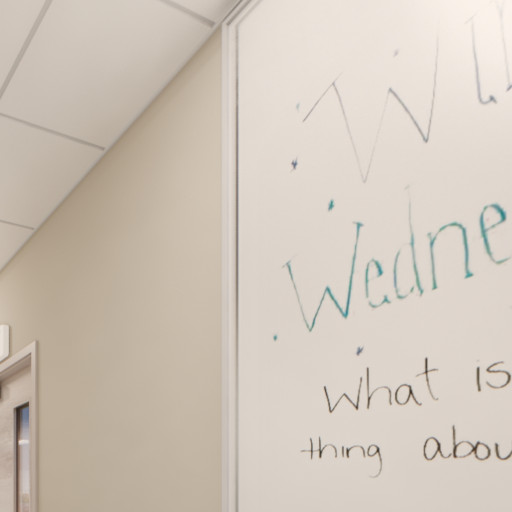 Wedne
What is
thing abou